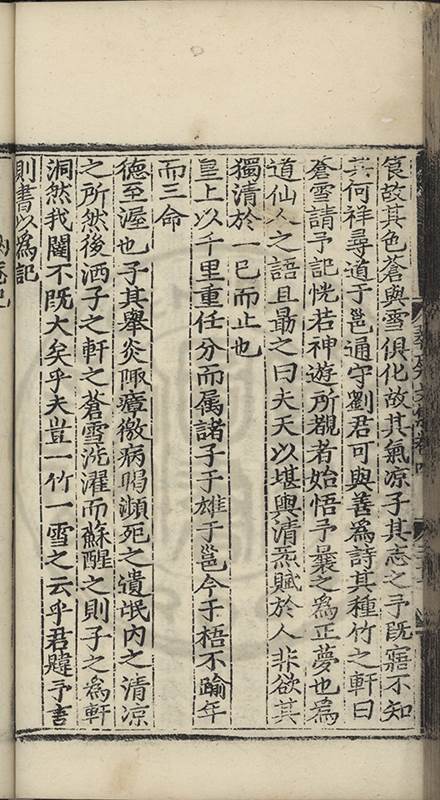 筤故其色蒼與雪俱化故其氣凉子其志之予既寤不知
其何祥尋道于邕通守劉君可與善爲詩其種竹之軒曰
蒼雪請予記恍若神遊所覩者始悟予曩之爲正夢也爲
道仙人之語且勗之曰夫天以堪輿清炁賦於人非欲其
獨清於一已而止也
皇上以千里重任分而属諸子于雄于邕今于梧不踰年
而三命
德至渥也子其舉炎陬瘴徼病暍瀕死之遺氓内之清凉
之所然後洒子之軒之蒼雪洗濯而蘇醒之則子之爲軒
洞然我闥不既大矣乎夫豈一竹一雪之云乎君韙予言
則書以爲記